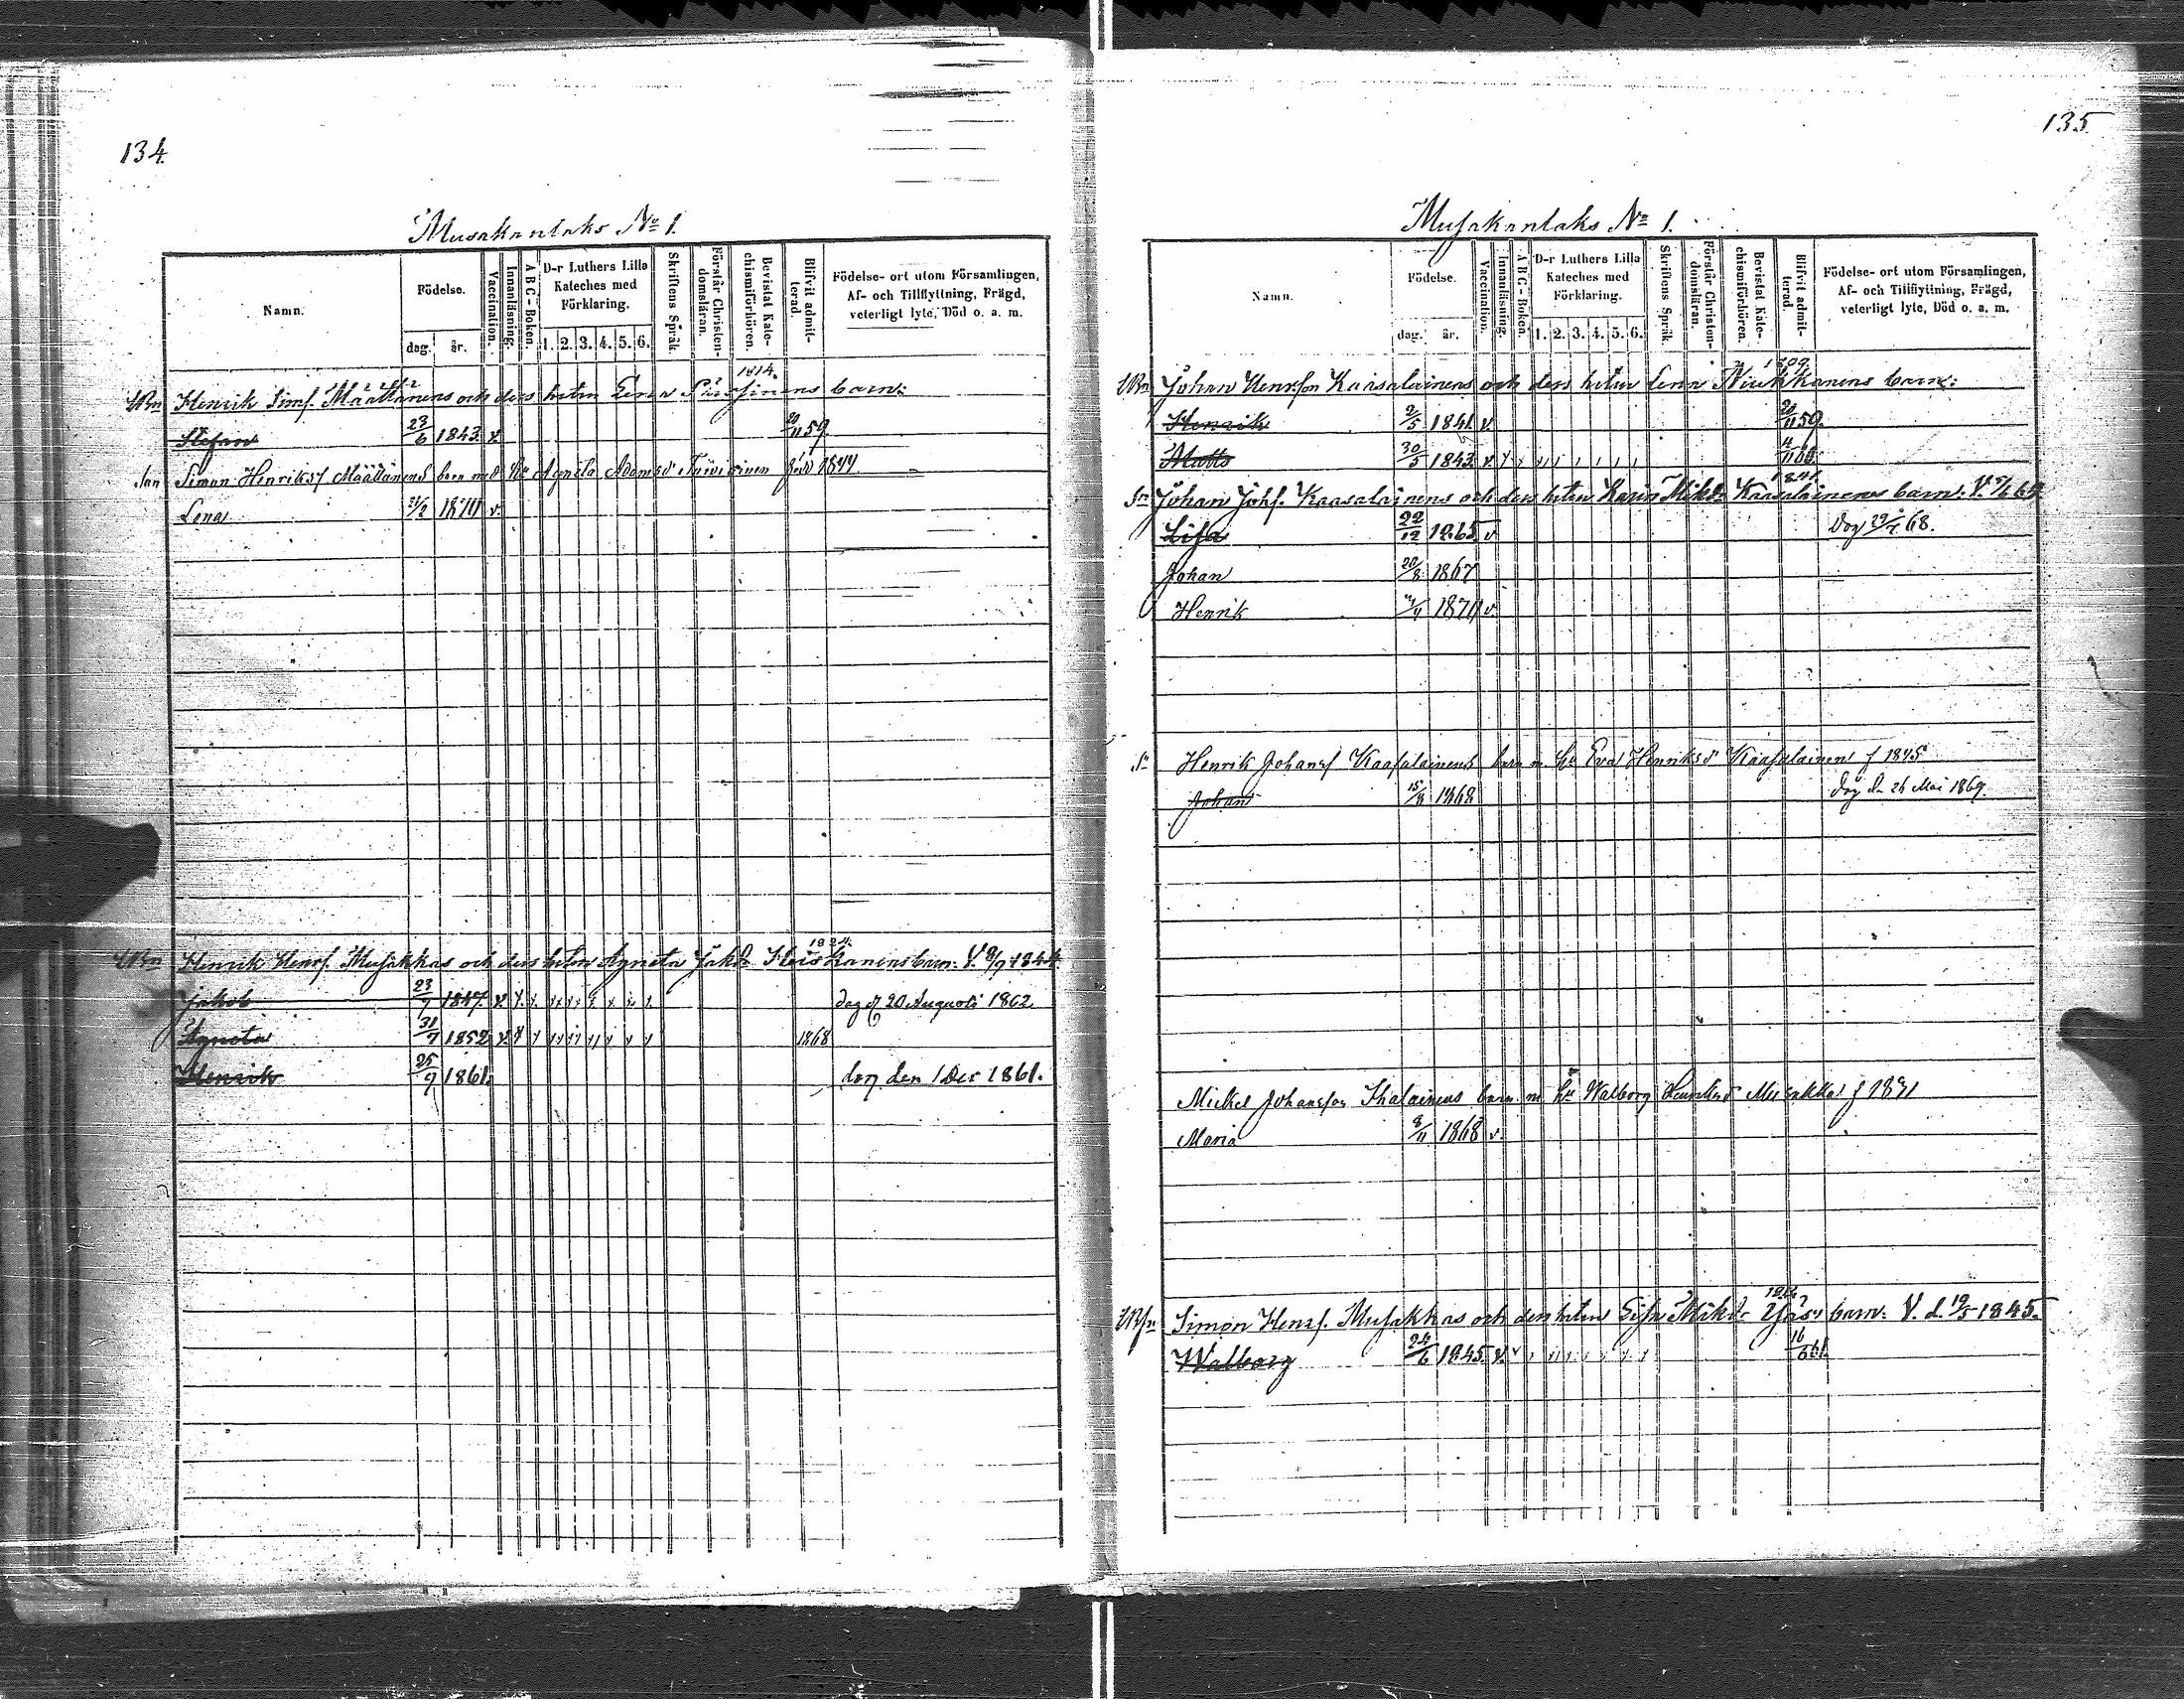 134.
Musakanlaks No 1.
Namn.
Födelse.
dag.
år.
Vaccination.
Innanläsning.
A B C - Boken.
D-r Luthers Lilla Kateches med Förklaring.
1. 2. 3. 4. 5. 6.
Skriftens Språk.
Förstår Christendomsläran.
Bevistat Katechismiförhören.
Blifvit admitterad.
Födelse- ort utom Församlingen, Af- och Tillflyttning, Frägd, veterligt lyte, Död o. a. m.
1814.
Henrik Simf. Määttänens och dess hstru Lena barn:
Stefan 23/6 1843 v. 20/11 59.
Son Simon Henriksf Määttänens barn med hu Agneta Adamsd född 1844
Lena 1870 v.
1824.
Henrik Henrf. Musakkas och dess hstru Agneta Jakd. Heiskanens barn. V. 8/9 1844.
Jakob 23/7 1847 v. dog d. 20 Augusti 1862
Agneta 31/7 1852 v. 1868
Henrik 25/9 1861. dog den 1 Dec 1861.
135.
Musakanlaks No 1.
Namn.
Födelse.
dag.
år.
Vaccination.
Innanläsning.
A B C - Boken.
D-r Luthers Lilla Kateches med Förklaring.
1. 2. 3. 4. 5. 6.
Skriftens Språk.
Förstår Christendomsläran.
Bevistat Katechismiförhören.
Blifvit admitterad.
Födelse- ort utom Församlingen, Af- och Tillflyttning, Frägd, veterligt lyte, Död o. a. m.
1809
Johan Henrson Kaasalainens och dess hstru Lena Niukkanens barn:
Henrik 9/5 1841 v. 20/11 59.
Matts 30/5 1843 v. 11/11 60.
1841.
Sn Johan Johf. Kaasalainens och dess hstru Karin Mikd. Kaasalainens barn.
Lisa 22/12 1865 v. Dog 29/ 68.
Johan 20/8 1867
Henrik 1870 v.
Sn Henrik Johansf Kaasalainens barn m hu Eva Henriksd Kaasalainen f 1845
Johan 15/8 1868 Dog d. 26 Mai 1869.
Mickel Johansson Ihalainens barn m hu Walborg Henriksd Musakka f
Maria 8/11 1868 v.
Simon Henrf. Musakkas och dess hstru Lisa Mikd. barn. V. d. 19/5 1845.
Walborg 24/6 1845 v. 16/6 61.